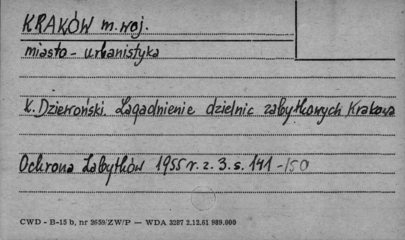 KRAKÓW m. woj.
miasto - urbanistyka
K. Dziewoński. Zagadnienie dzielnic zabytkowych Krakowa
Ochrona Zabytków 1955 r. z. 3. s. 141 - 150
CWD - B-15 b, nr 2659/ZW/P — WDA 3287 2.12.61 989.000